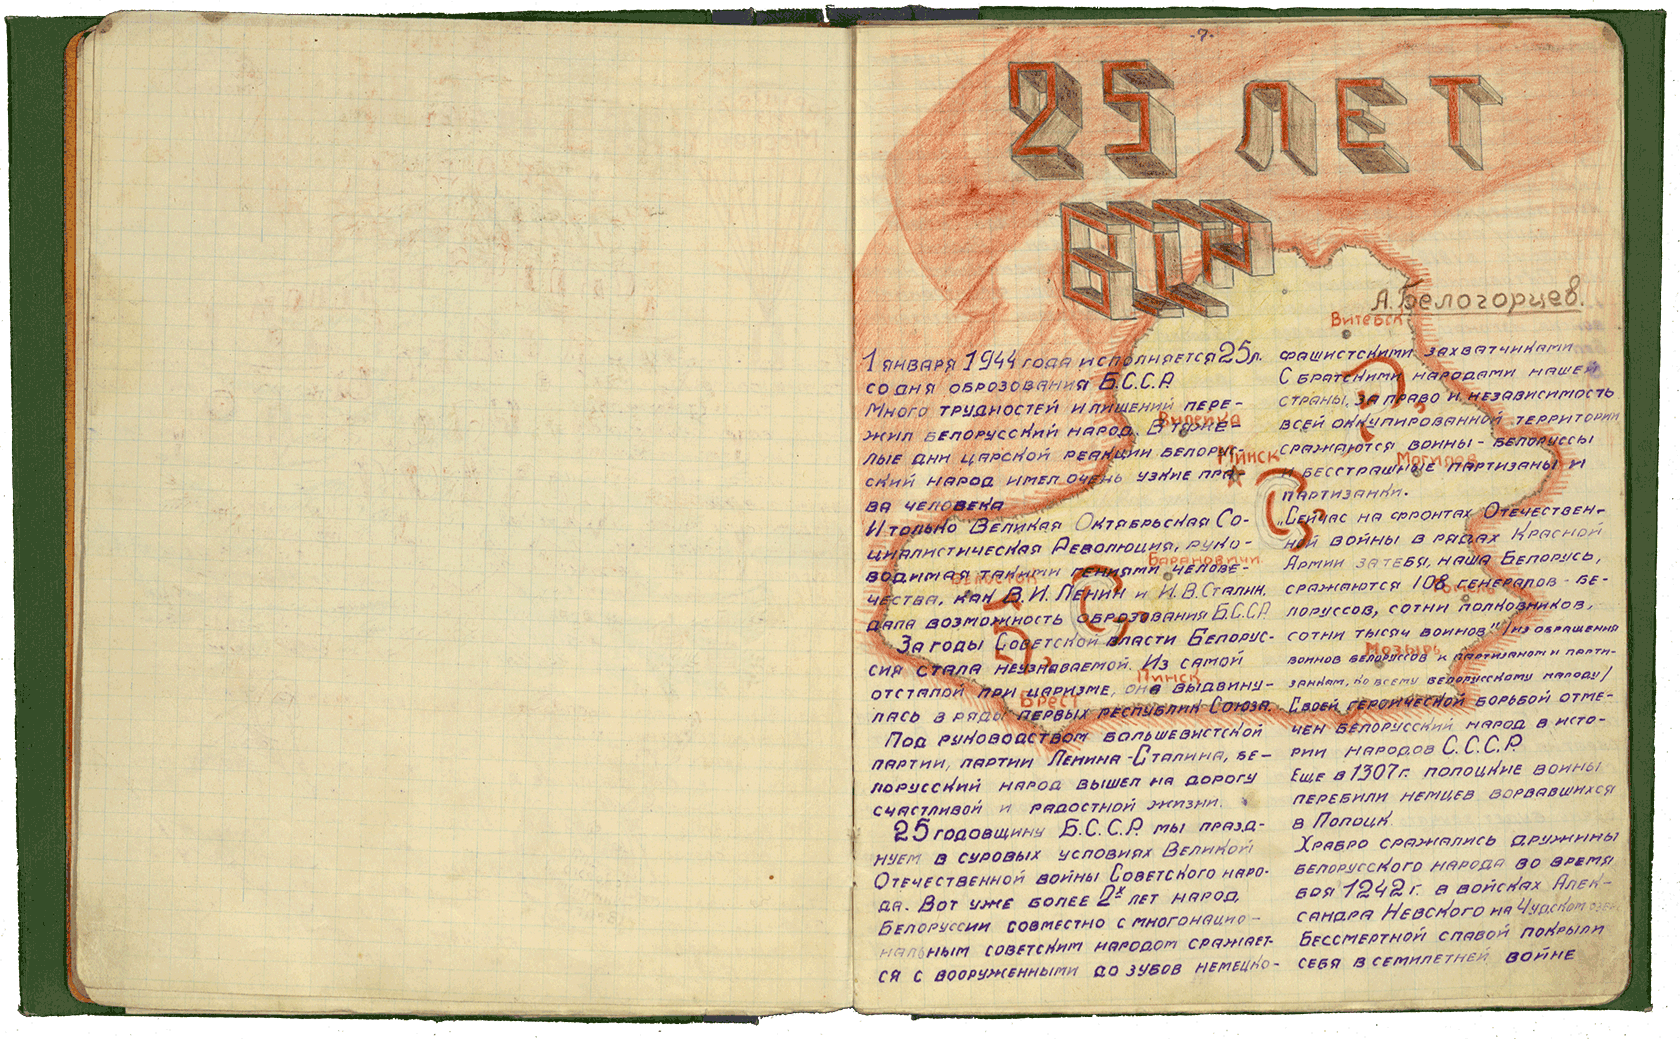 -7-
25 ЛЕТ
БССР
А. Белогорцев.
1 января 1944 года исполняется 25 л.
со дня оброзования Б.С.С.Р.
Много трудностей и лишений пере-
жил белорусский народ. В тяже-
лые дни царской реакции белорус-
ский народ имел очень узкие пра-
ва человека
И только Великая Октябрьская Со-
циалистическая Революция, руко-
водимая такими гениями челове-
чества, как В. И. Ленин и И. В. Сталин,
дала возможность оброзования Б.С.С.Р.
За годы Советской власти Белорус-
сия стала неузноваемой. Из самой
отсталой при царизме, она выдвину-
лась в ряды первых республик Союза.
Под руководством большевистской
партии, партии Ленина-Сталина, бе-
лорусский народ вышел на дорогу
счастливой и радостной жизни.
25 годовщину Б.С.С.Р. мы празд-
нуем в суровых условиях Великой
Отечественной войны Советского наро-
да. Вот уже более 2х лет народ,
Белоруссии совместно с многонацио-
нальным советским народом сражает-
ся с вооруженными до зубов немецко-
фашистскими захватчиками
С братскими народами нашей
страны, за право и независимость
всей оккупированной территории
сражаются воины-белоруссы
и бесстрашные партизаны и
партизанки.
„Сейчас на фронтах Отечествен-
ной войны в рядах Красной
Армии за тебя, наша Белорусь,
сражаются 108 генералов-бе-
лоруссов, сотни полковников,
сотни тысяч воинов" /из обращения
воинов белоруссов к партизанам и парти-
занкам, ко всему белорусскому народу/
Своей героической борьбой отме-
чен белорусский народ в исто-
рии народов С.С.С.Р.
Еще в 1307 г. полоцкие воины
перебили немцев ворвавшихся
в Полоцк.
Храбро сражались дружины
белорусского народа во время
боя 1242 г. в войсках Алек-
сандра Невского на Чудском озере
Бессмертной славой покрыли
себя в семилетней войне
Витебск
Вилейка
Минск
Могилев
Барановичи
Белосток
Гомель
Мозырь
Пинск
Брест
Б.
С.
С.
Р.